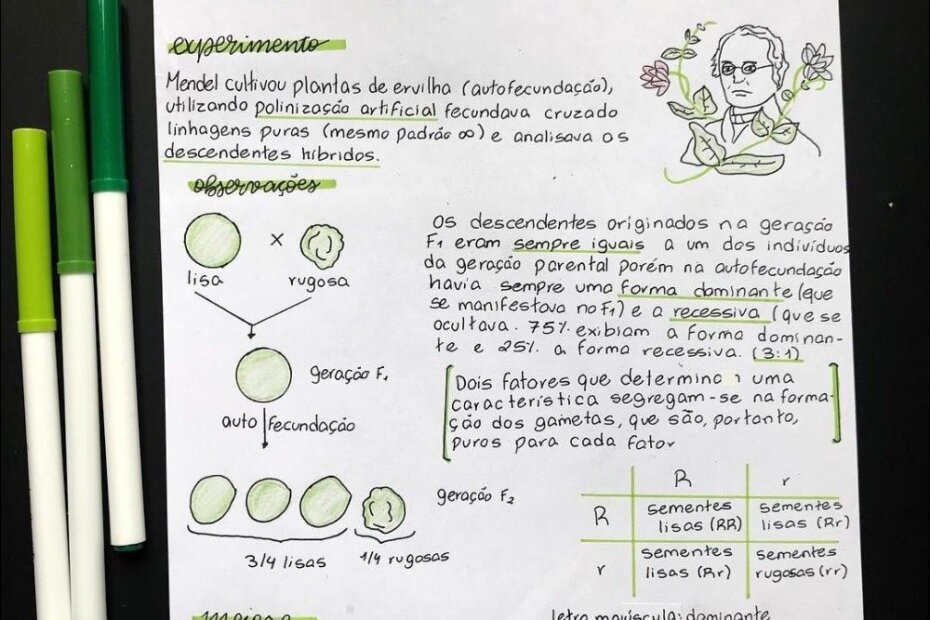 experimento
Mendel cultivou plantas de ervilha (autofecundação),
utilizando polinização artificial fecundava cruzado
linhagens puras (mesmo padrão ∞) e analisava os
descendentes híbridos.
observações
lisa
x
rugosa
geração F1
auto fecundação
geração F2
3/4 lisas
1/4 rugosas
Os descendentes originados na geração
F1 eram sempre iguais a um dos indivíduos
da geração parental porém na autofecundação
havia sempre uma forma dominante (que
se manifestava no F1) e a recessiva (que se
ocultava. 75% exibiam a forma dominan-
te e 25% a forma recessiva. (3:1)
Dois fatores que determina uma
característica segregam-se na forma-
ção dos gametas, que são, portanto,
puros para cada fator
R r
R sementes sementes
lisas (RR) lisas (Rr)
r sementes sementes
lisas (Rr) rugosas (rr)
letra maúscula: dominante